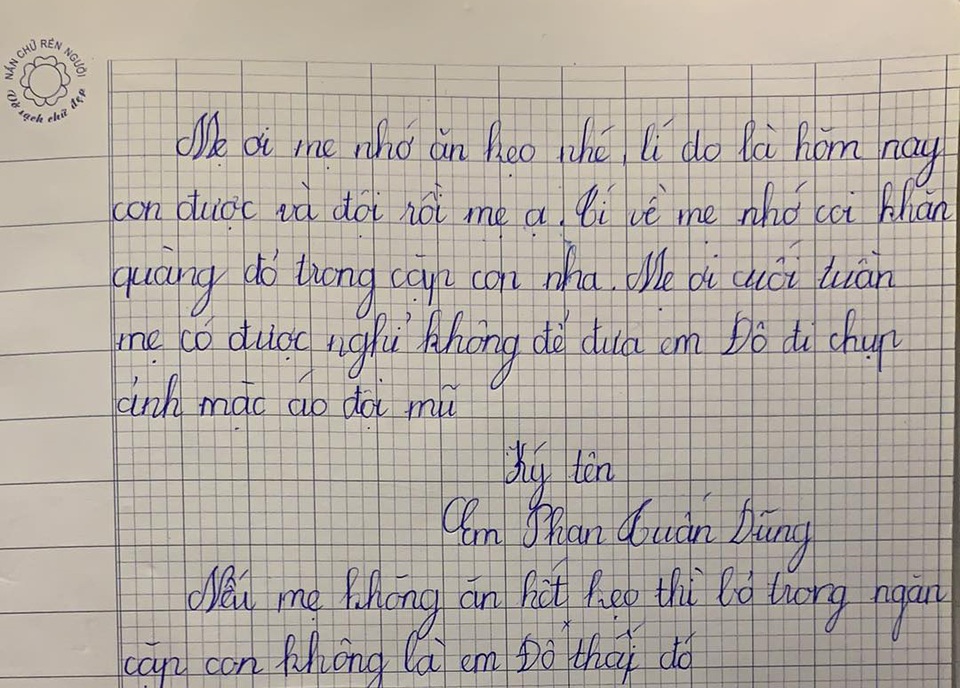 NẮN CHỮ RÈN NGƯỜI
Vở sạch chữ đẹp
Mẹ ơi mẹ nhớ ăn kẹo nhé, lí do là hôm nay
con được và đội rồi mẹ ạ. Tí về mẹ nhớ coi khăn
quàng đỏ trong cặp con nha. Mẹ ơi cuối tuần
mẹ có được nghỉ không để đưa em Đô đi chụp
ảnh mặc áo đội mũ
Ký tên
Em Phan Xuân Dũng
Nếu mẹ không ăn hết kẹo thì bỏ trong ngăn
cặp con không là em Đô thấy đó